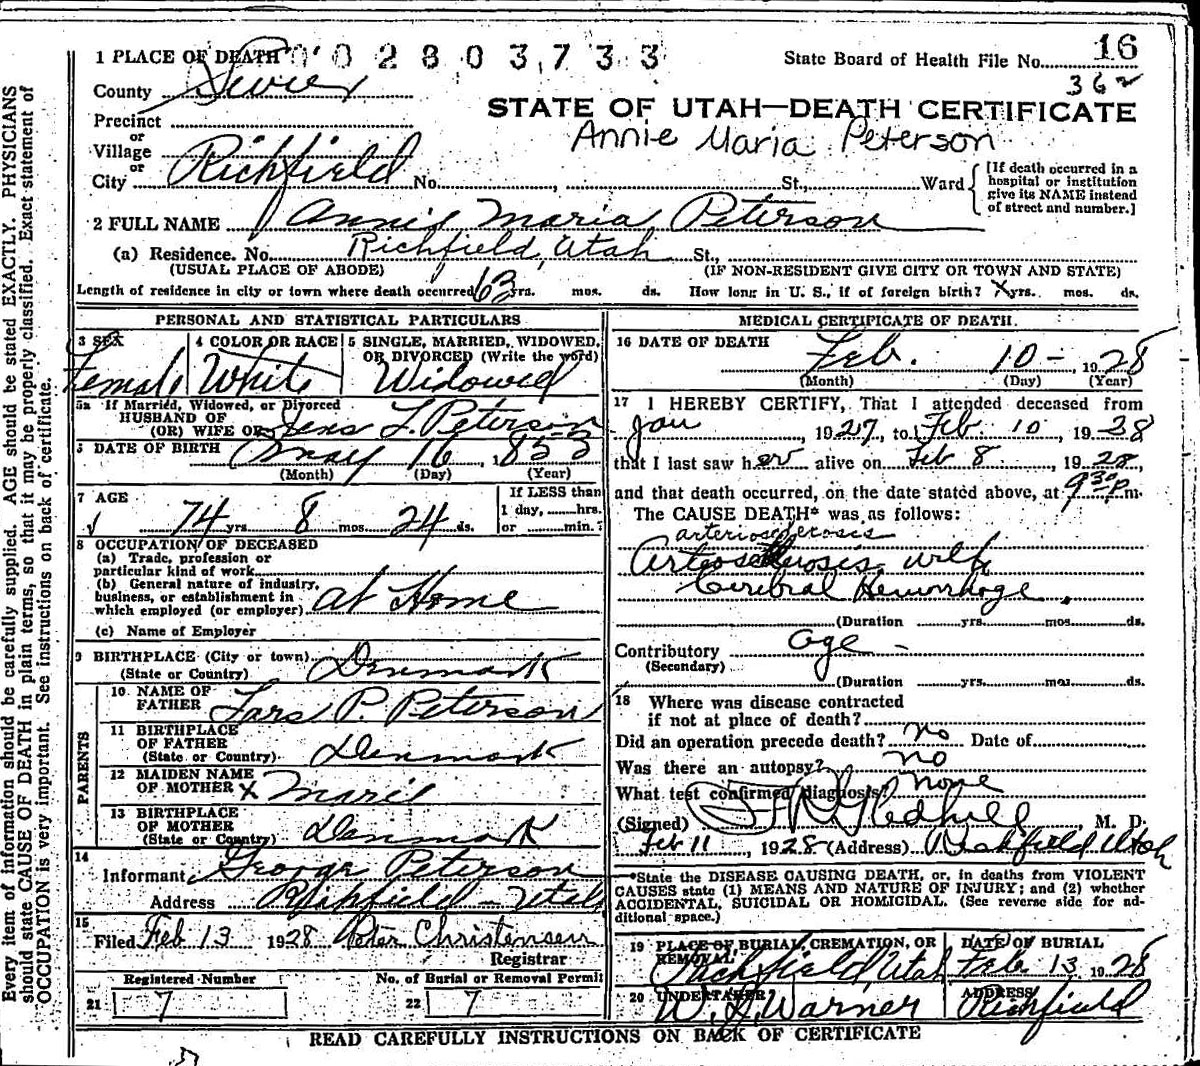 1 PLACE OF DEATH 0 0 2 8 0 3 7 3 3
State Board of Health File No. 16
362
County Sevier
STATE OF UTAH—DEATH CERTIFICATE
Precinct
Annie Maria Peterson
or
Village
or
City Richfield No. , St., Ward
[If death occurred in a
hospital or institution
give its NAME instead
of street and number.]
2 FULL NAME Annie Maria Peterson
(a) Residence. No. Richfield, Utah St.,
(USUAL PLACE OF ABODE) (IF NON-RESIDENT GIVE CITY OR TOWN AND STATE)
Length of residence in city or town where death occurred 63 yrs. mos. ds. How long in U. S., if of foreign birth? x yrs. mos. ds.
PERSONAL AND STATISTICAL PARTICULARS
3 SEX
Female
4 COLOR OR RACE
White
5 SINGLE, MARRIED, WIDOWED,
OR DIVORCED (Write the word)
Widowed
5a If Married, Widowed, or Divorced
HUSBAND OF
(OR) WIFE OF Jens L. Peterson
6 DATE OF BIRTH May 16, 1853
(Month) (Day) (Year)
7 AGE
74 yrs. 8 mos. 24 ds.
If LESS than
1 day, hrs.
or min.?
8 OCCUPATION OF DECEASED
(a) Trade, profession or
particular kind of work
(b) General nature of industry,
business, or establishment in
which employed (or employer) at Home
(c) Name of Employer
9 BIRTHPLACE (City or town)
(State or Country) Denmark
PARENTS
10 NAME OF
FATHER Lars P. Peterson
11 BIRTHPLACE
OF FATHER
(State or Country) Denmark
12 MAIDEN NAME
OF MOTHER x Marie
13 BIRTHPLACE
OF MOTHER
(State or Country) Denmark
14
Informant George Peterson
Address Richfield - Utah
15
Filed Feb 13 1928 Peter Christensen
Registrar
Registered Number No. of Burial or Removal Permit
21 7 22 7
MEDICAL CERTIFICATE OF DEATH.
16 DATE OF DEATH
Feb. 10 - , 1928
(Month) (Day) (Year)
17 I HEREBY CERTIFY, That I attended deceased from
Jan , 1927, to Feb 10 , 1928
that I last saw her alive on Feb 8 , 1928,
and that death occurred, on the date stated above, at 9 30 p m.
The CAUSE DEATH* was as follows:
arteriosclerosis
Arteosclerosis with
Cerebral Hemorrhage.
(Duration yrs. mos. ds.
Contributory Age -
(Secondary)
(Duration yrs. mos. ds.
18 Where was disease contracted
if not at place of death?
Did an operation precede death? no Date of
Was there an autopsy? no
What test confirmed diagnosis? none
(Signed) Gledhill M. D.
Feb 11 , 1928 (Address) Richfield Utah
*State the DISEASE CAUSING DEATH, or, in deaths from VIOLENT
CAUSES state (1) MEANS AND NATURE OF INJURY; and (2) whether
ACCIDENTAL, SUICIDAL OR HOMICIDAL. (See reverse side for ad-
ditional space.)
19 PLACE OF BURIAL, CREMATION, OR
REMOVAL
Richfield Utah
DATE OF BURIAL
Feb. 13 1928
20 UNDERTAKER
W. Warner
ADDRESS
Richfield
READ CAREFULLY INSTRUCTIONS ON BACK OF CERTIFICATE
Every item of information should be carefully supplied. AGE should be stated EXACTLY. PHYSICIANS
should state CAUSE OF DEATH in plain terms, so that it may be properly classified. Exact statement of
OCCUPATION is very important. See instructions on back of certificate.